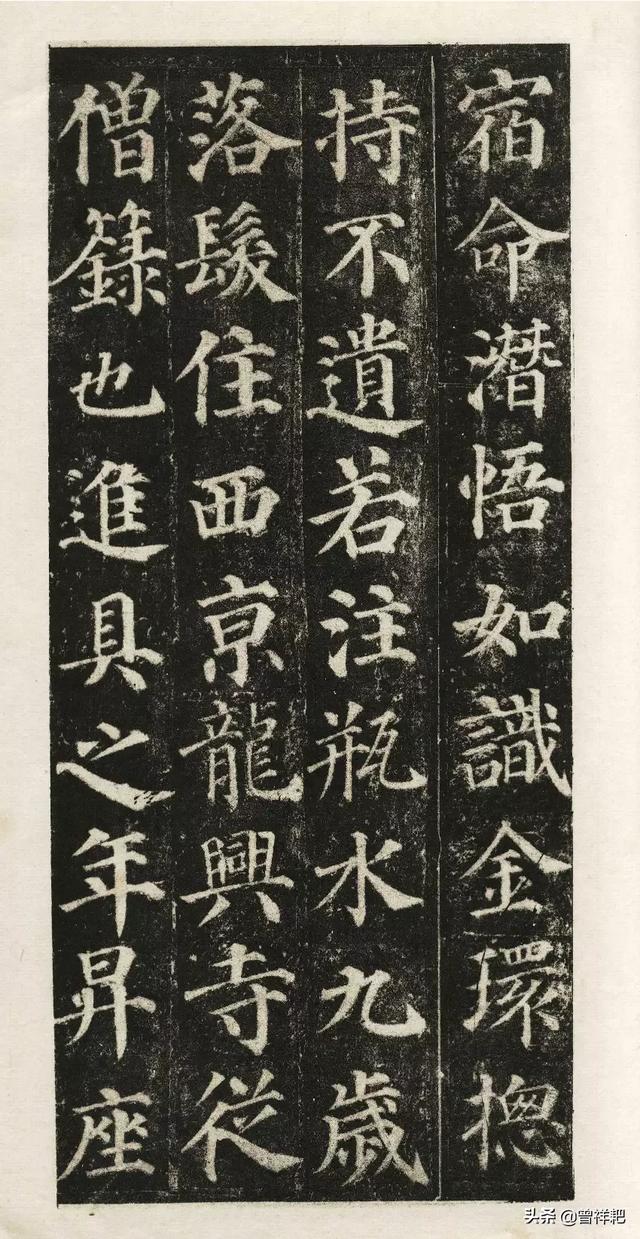 宿命潛悟如識金環揔
持不遺若注瓶水九歲
落髮住西京龍興寺從
僧籙也進具之年昇座
头条@曾祥耙